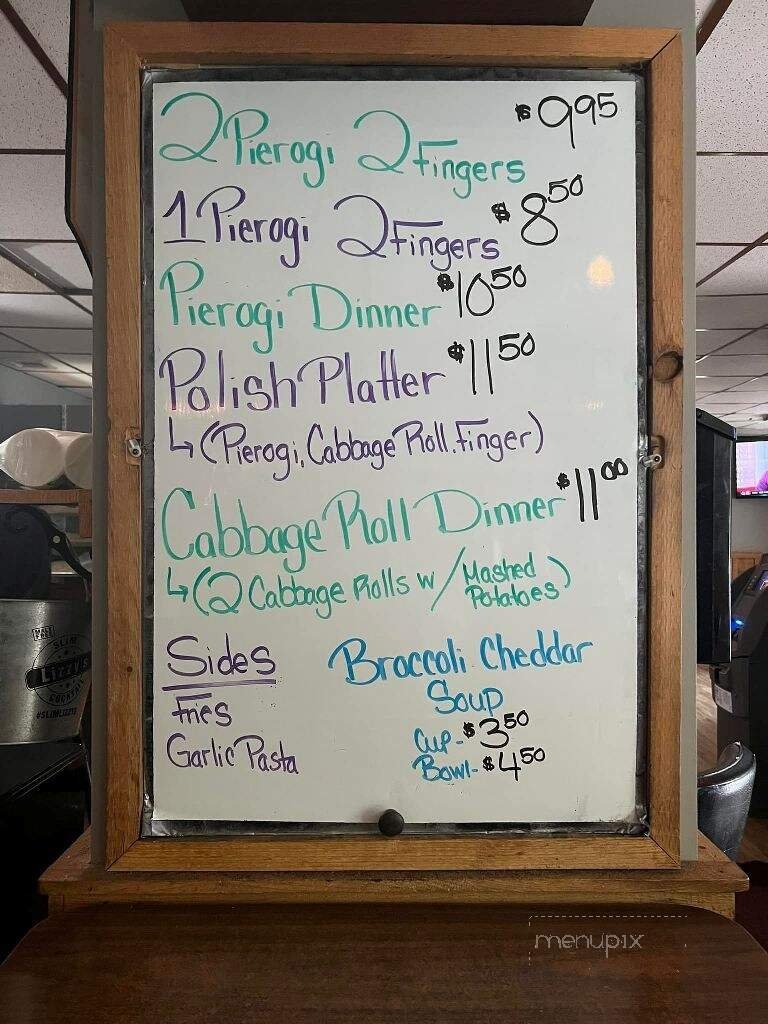 2 Pierogi 2 Fingers $9.95
1 Pierogi 2 Fingers $8.50
Pierogi Dinner $10.50
Polish Platter $11.50
↳ (Pierogi, Cabbage Roll, Finger)
Cabbage Roll Dinner $11.00
↳ (2 Cabbage Rolls w/ Mashed Potatoes)
Sides
Fries
Garlic Pasta
Broccoli Cheddar
Soup
Cup - $3.50
Bowl - $4.50
SLIM
LIZZY'S
#SLIMLIZZYS
menupix